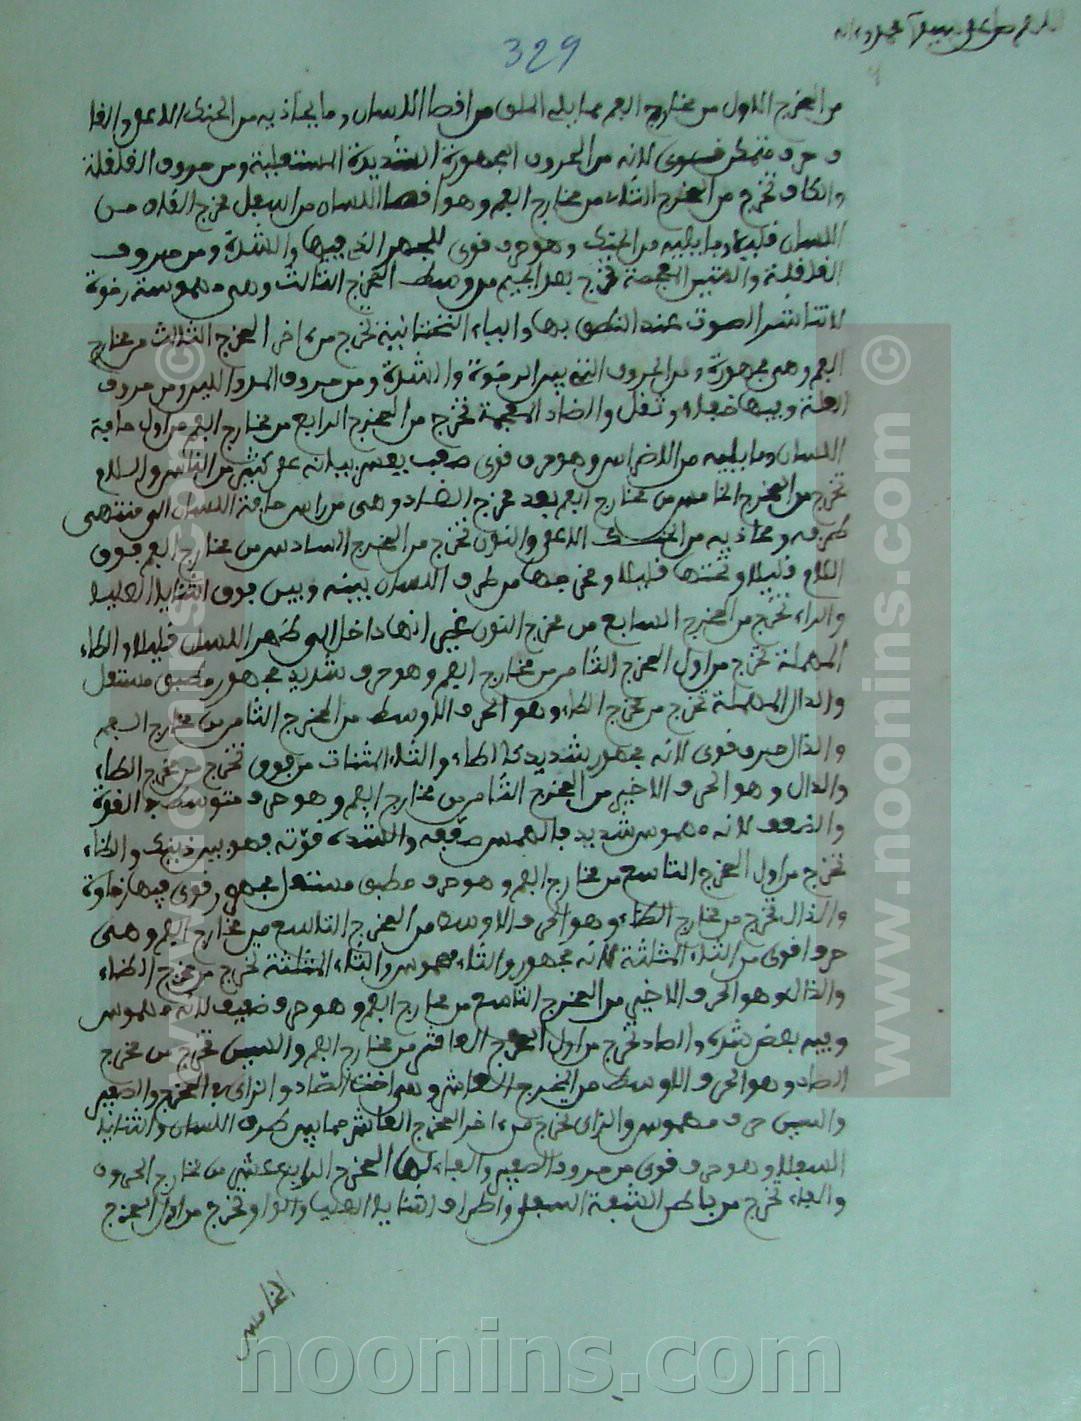 اللهم صل على سيدنا محمد وءاله
329
من المخرج الاول من مخارج الفم مما يلي الحلق من اقصا اللسان وما يحاذيه من الحنك الاعلى والقا
ف حرف متمكن قوي لانه من الحروف المجهورة الشديدة المستعلية ومن حروف القلقلة
والكاف تخرج من المخرج الثاني من مخارج الفم وهو اقصا اللسان من اسفل مخرج القاف من
اللسان قليلا وما يليه من الحنك وهو حرف قوي للجهر الذي فيها والشدة ومن حروف
القلقلة والشين المعجمة تخرج بعد الجيم من وسط المخرج الثالث وهي مهموسة رخوة
لانتشار الصوت عند النطق بها والياء التحتانية تخرج من ءاخر المخرج الثالث من مخارج
الفم وهي مجهورة ومن الحروف التي بين الرخوة والشدة ومن حروف المد واللين ومن حروف
العلة وفيها خفاء وثقل والضاد المعجمة تخرج من المخرج الرابع من مخارج الفم من اول حافة
اللسان وما يليه من الاضراس وهو حرف قوي صعب يعسر بيانه على كثير من الناس واللام
تخرج من المخرج الخامس من مخارج الفم بعد مخرج الضاد وهي من راس حافة اللسان الى منتهى
طرفه ومحاذيه من الحنك الاعلى والنون تخرج من المخرج السادس من مخارج الفم فوق
اللام قليلا وتحتها قليلا ومخرجها من طرف اللسان بينه وبين فوق الثنايا العليا
والراء تخرج من المخرج السابع من مخرج النون غير انها داخل الى ظهر اللسان قليلا والطاء
المهملة تخرج من اول المخرج الثامن من مخارج الفم وهو حرف شديد مجهور مطبق مستعل
والدال المهملة تخرج من مخرج الطاء وهو الحرف الاوسط من المخرج الثامن من مخارج الفم
والدال حرف قوي لانه مجهور شديد كالطاء والتاء المثنات من فوق تخرج من مخرج الطاء
والدال وهو الحرف الاخير من المخرج الثامن من مخارج الفم وهو حرف متوسط في القوة
والضعف لانه مهموس شديد فالهمس ضعفه والشدة قوته فهو بين ذينك والظاء
تخرج من اول المخرج التاسع من مخارج الفم وهو حرف مطبق مستعل مجهور قوي فيها رخاوة
والذال تخرج من مخارج الظاء وهو الحرف الاوسط من المخرج التاسع من مخارج الفم وهي
حرف اقوى من الثاء المثلثة لانه مجهور والثاء مهموس والثاء المثلثة تخرج من مخرج الظاء
والذال وهو الحرف الاخير من المخرج التاسع من مخارج الفم وهو حرف ضعيف لانه مهموس
وفيه بعض شدة والصاد تخرج من اول المخرج العاشر من مخارج الفم والسين تخرج من مخرج
الصاد وهو الحرف الاوسط من المخرج العاشر وهي اخت الصاد والزاي في المخرج والصفير
والسين حرف مهموس والزاي تخرج من ءاخر المخرج العاشر مما بين طرف اللسان والثنايا
السفلا وهو حرف قوي من حروف الصفير والفاء لها المخرج الرابع عشر من مخارج الحروف
والفاء تخرج من باطن الشفة السفلى واطراف الثنايا العليا والواو تخرج من اول المخرج
الخامس
www.noonins.com ©
www.noonins.com ©
noonins.com